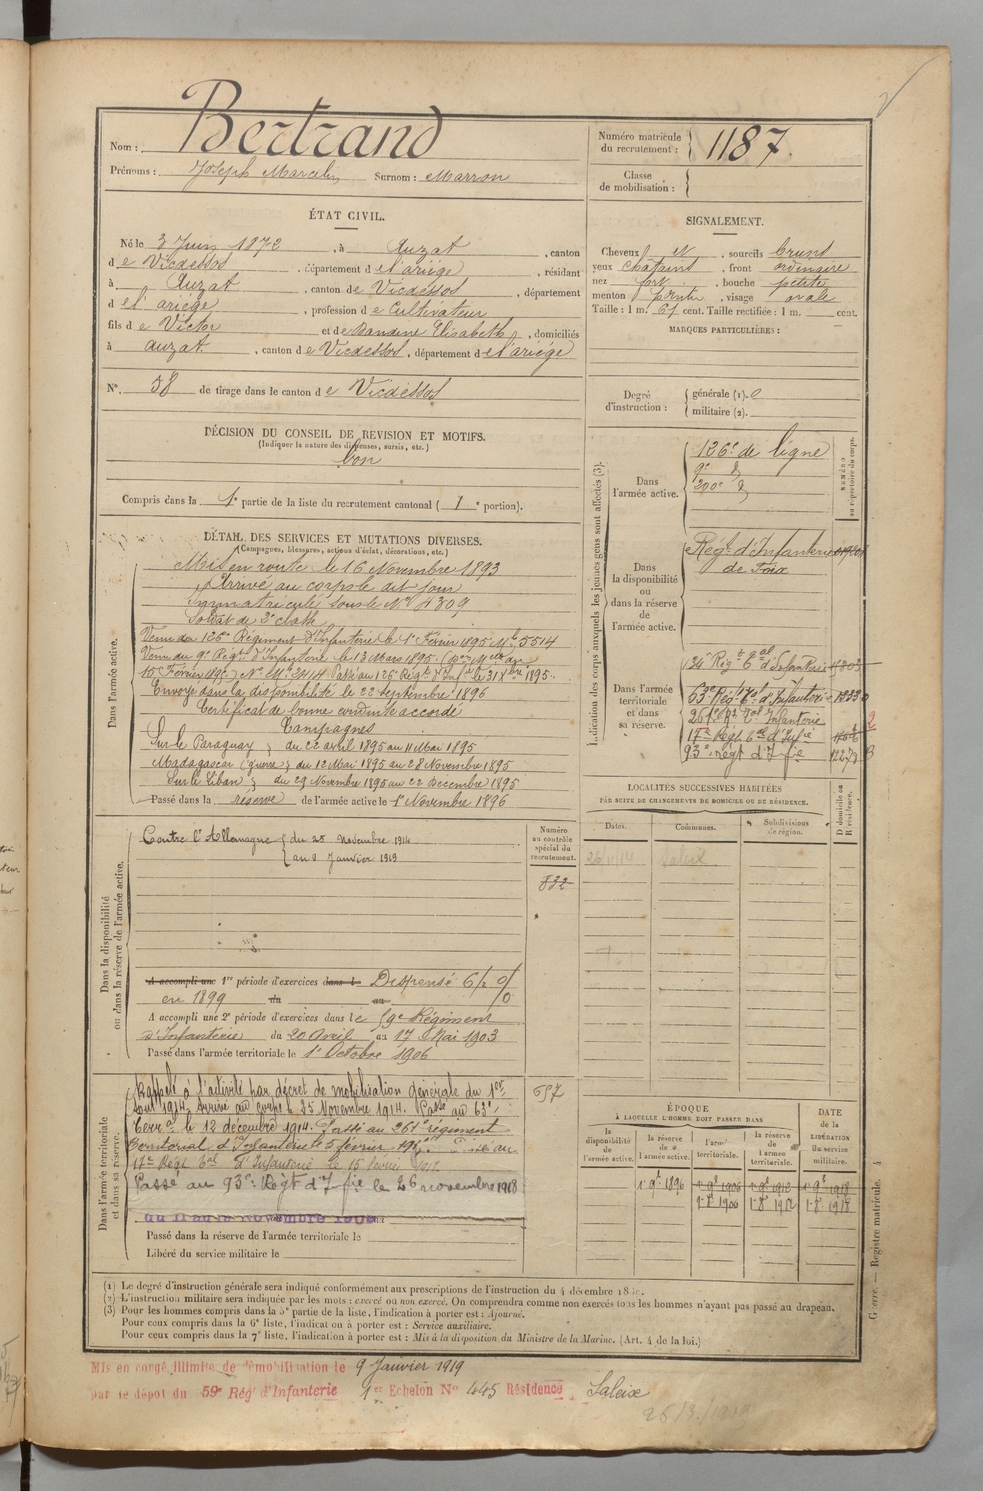 Nom : Bertrand
Prénoms : Joseph Marcelin Surnom : Marron
Numéro matricule du recrutement : 1187.
Classe de mobilisation :
ÉTAT CIVIL.
Né le 3 Juin 1872, à Auzat, canton
de Vicdessos, département de l'ariège, résidant
à Auzat, canton de Vicdessos, département
de l'ariège, profession de Cultivateur
fils de Victor et de Dandine Elisabeth, domiciliés
à auzat, canton de Vicdessos, département de l'ariège
N°. 38 de tirage dans le canton de Vicdessos
SIGNALEMENT.
Cheveux et, sourcils bruns
yeux châtains, front ordinaire
nez fort, bouche petite
menton, visage ovale
Taille : 1 m. 61 cent. Taille rectifiée : 1 m. cent.
MARQUES PARTICULIÈRES :
Degré d'instruction :
générale (1).
militaire (2).
DÉCISION DU CONSEIL DE REVISION ET MOTIFS.
(Indiquer la nature des dispenses, sursis, etc.)
bon
Compris dans la 1e partie de la liste du recrutement cantonal (1e portion).
DÉTAIL DES SERVICES ET MUTATIONS DIVERSES.
(Campagnes, blessures, actions d'éclat, décorations, etc.)
Dans l'armée active.
Mis en route le 16 Novembre 1893
Arrivé au corps le dit jour
Immatriculé sous le N° 4309
Soldat de 2e classe
Venu du 126e Régiment d'Infanterie le 1er Février 1895 Mle 5514
Venu du 9e Régt d'Infanterie le 13 Mars 1895.
10 Février 1895) N° Mle 3414 Passé au 126 Régt d'Infie le 31 Xbre 1895.
Envoyé dans la disponibilité le 22 septembre 1896
Certificat de bonne conduite accordé
Campagnes
Sur le Paraguay } du 22 avril 1895 au 11 Mai 1895
Madagascar (guerre) du 12 Mai 1895 au 28 Novembre 1895
Sur le Liban } du 29 Novembre 1895 au 22 Décembre 1895
Passé dans la réserve de l'armée active le 1er Novembre 1896
Indication des corps auxquels les jeunes gens sont affectés (3).
NUMÉRO au répertoire du corps.
Dans l'armée active.
126e de ligne
9e d°
200e d°
Dans la disponibilité ou dans la réserve de l'armée active.
Régt d'Infanterie
de Foix
Dans l'armée territoriale et dans sa réserve.
Régt tal d'Infanterie
63e Régt tal d'Infanterie
261e Rt tal d'Infanterie
17e Régt tal d'Infie
93e regt d'I fie
LOCALITÉS SUCCESSIVES HABITÉES
PAR SUITE DE CHANGEMENTS DE DOMICILE OU DE RÉSIDENCE.
Dates. Communes. Subdivisions de région. D domicile ou R résidence.
26/11/14 Saleix
Dans la disponibilité ou dans la réserve de l'armée active.
Numéro au contrôle spécial du recrutement.
Contre l'Allemagne { du 25 novembre 1914
{ au 9 Janvier 1919
832
A accompli une 1re période d'exercices dans l Dispensé
en 1899 du au
A accompli une 2e période d'exercices dans le 59e Régiment
d'Infanterie du 20 Avril au 17 Mai 1903
Passé dans l'armée territoriale le 1er Octobre 1906
Dans l'armée territoriale et dans sa réserve.
Rappelé à l'activité par décret de mobilisation générale du 1er
aout 1914. Arrivé au corps le 25 Novembre 1914. Passé au 63e
Terral le 12 décembre 1914. Passé au 261e régiment
Territorial d'Infanterie le 5 février
17e Régt tal d'Infanterie le 15 février
Passé au 93e Régt d'I fie le 26 novembre 1918
697
Passé dans la réserve de l'armée territoriale le
Libéré du service militaire le
ÉPOQUE
À LAQUELLE L'HOMME DOIT PASSER DANS
DATE de la LIBÉRATION du service militaire.
la disponibilité de l'armée active.
la réserve de l'armée active.
l'armée territoriale.
la réserve de l'armée territoriale.
1er 9e 1896
(1) Le degré d'instruction générale sera indiqué conformément aux prescriptions de l'instruction du 4 décembre
(2) L'instruction militaire sera indiquée par les mots : exercé ou non exercé. On comprendra comme non exercés tous les hommes n'ayant pas passé au drapeau.
(3) Pour les hommes compris dans la 5e partie de la liste, l'indication à porter est : Ajourné.
Pour ceux compris dans la 6e liste, l'indication à porter est : Service auxiliaire.
Pour ceux compris dans la 7e liste, l'indication à porter est : Mis à la disposition du Ministre de la Marine. (Art. 4 de la loi.)
Registre matricule. 4
Mis en congé illimité de démobilisation le 9 Janvier 1919
par le dépôt du 59e Régt d'Infanterie 1er Echelon N° 445 Résidence Saleix